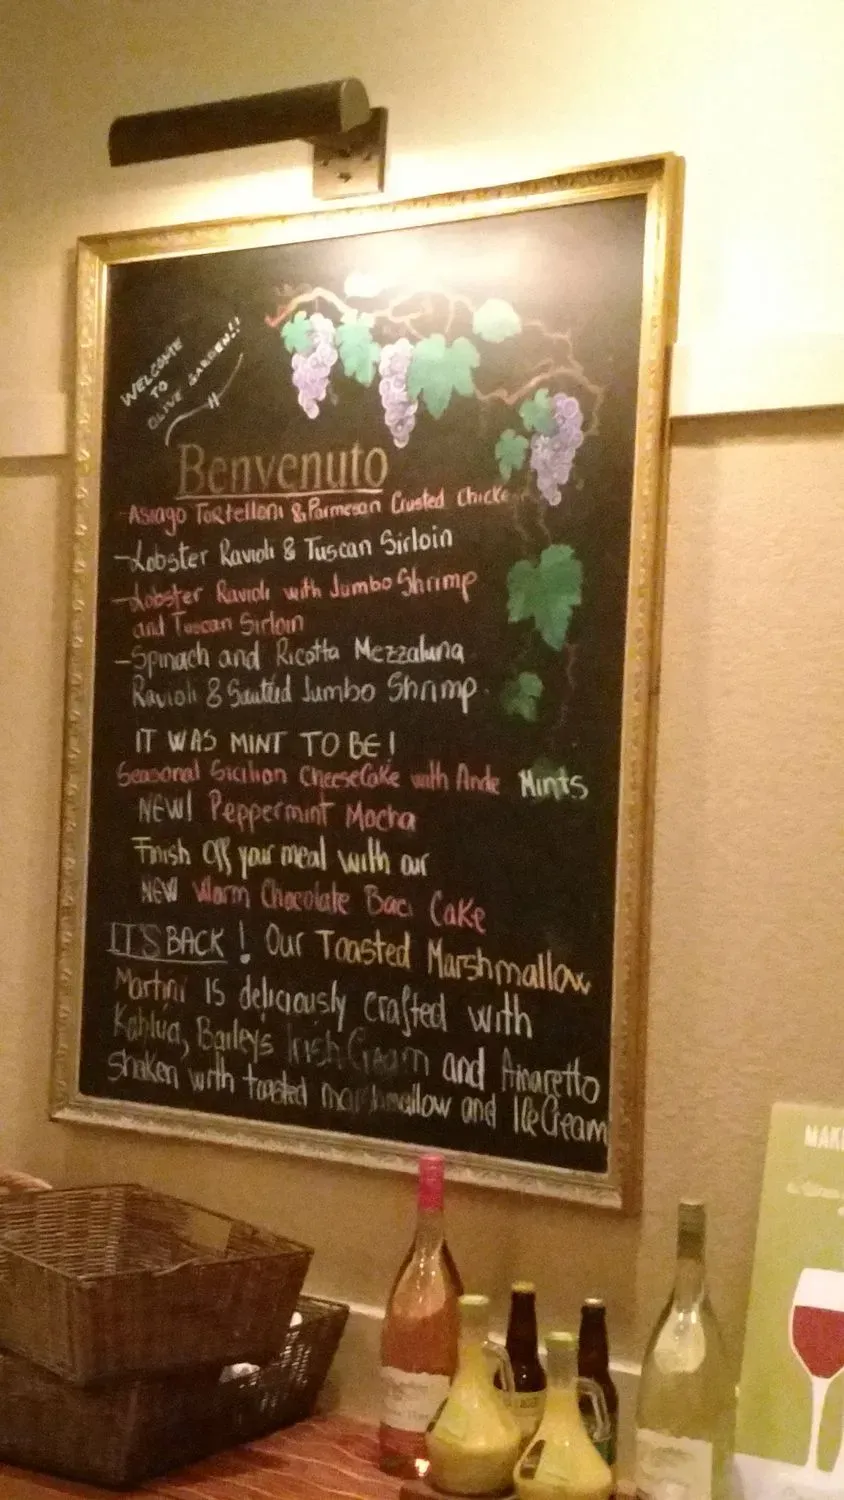 WELCOME
TO
OLIVE GARDEN!!
Benvenuto
- Asiago Tortelloni & Parmesan Crusted Chicke
- Lobster Ravioli & Tuscan Sirloin
- Lobster Ravioli with Jumbo Shrimp
and Tuscan Sirloin
- Spinach and Ricotta Mezzaluna
Ravioli & Sautéed Jumbo Shrimp.
IT WAS MINT TO BE!
Seasonal Sicilian CheeseCake with Ande Mints
NEW! Peppermint Mocha
Finish Off your meal with our
NEW Warm Chocolate Baci Cake
IT'S BACK! Our Toasted Marshmallow
Martini is deliciously crafted with
Kahlúa, Baileys Irish Cream and Amaretto
Shaken with toasted marshmallow and Ice Cream
MAK